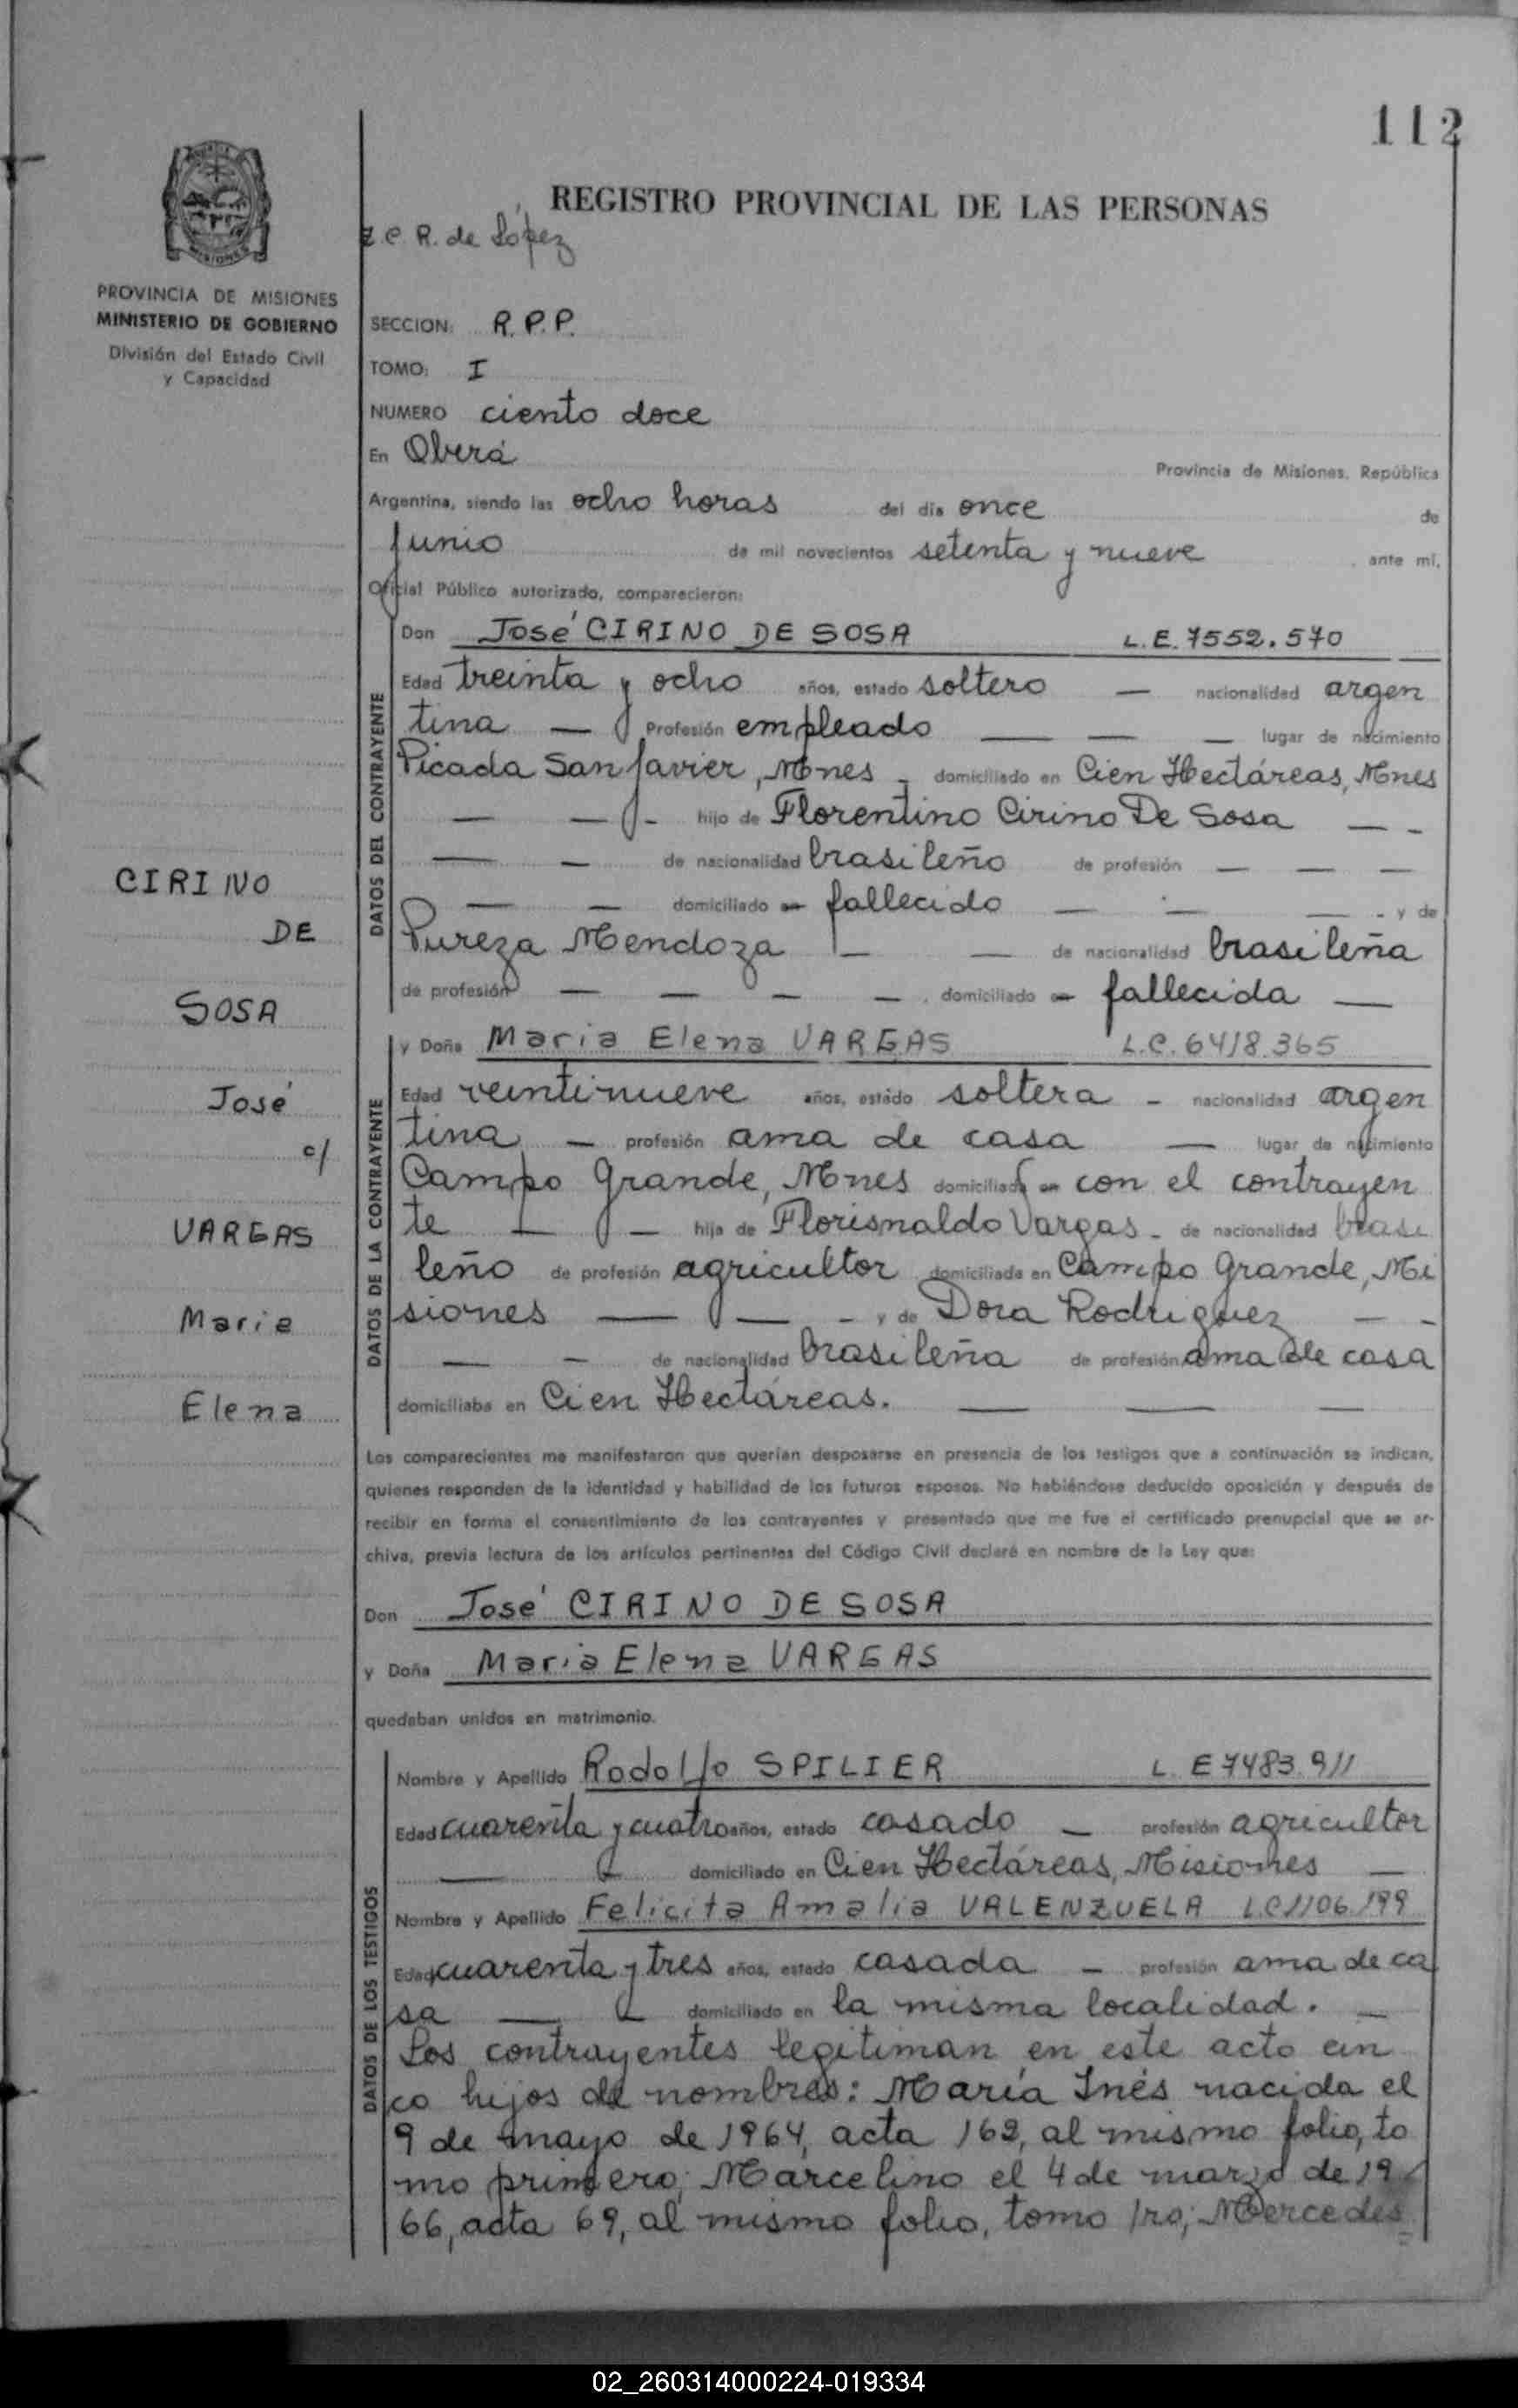 112
REGISTRO PROVINCIAL DE LAS PERSONAS
R. de López
PROVINCIA DE MISIONES
MINISTERIO DE GOBIERNO
División del Estado Civil
y Capacidad
SECCION: R.P.P.
TOMO: I
NUMERO ciento doce
En Oberá
Provincia de Misiones, República
Argentina, siendo las ocho horas del día once de
Junio de mil novecientos setenta y nueve, ante mí,
Oficial Público autorizado, comparecieron:
DATOS DEL CONTRAYENTE
Don José CIRINO DE SOSA L.E. 7552.570
Edad treinta y ocho años, estado soltero — nacionalidad argen
tina — Profesión empleado — — — lugar de nacimiento
Picada San Javier, Mnes - domiciliado en Cien Hectáreas, Mnes
— — - hijo de Florentino Cirino De Sosa — -
— — de nacionalidad brasileño de profesión — — —
— — domiciliado en fallecido — - — - y de
Pureza Mendoza — — de nacionalidad brasileña
de profesión — — — —, domiciliado en fallecida —
DATOS DE LA CONTRAYENTE
y Doña Maria Elena VARGAS L.C. 6418.365
Edad veintinueve años, estado soltera - nacionalidad argen
tina — profesión ama de casa — lugar de nacimiento
Campo Grande, Mnes domiciliada en con el contrayen
te — — hija de Florisnaldo Vargas - de nacionalidad brasi
leño de profesión agricultor domiciliada en Campo Grande, Mi
siones — — - y de Dora Rodriguez — -
— - de nacionalidad brasileña de profesión ama de casa
domiciliaba en Cien Hectáreas. — — —
Los comparecientes me manifestaron que querían desposarse en presencia de los testigos que a continuación se indican,
quienes responden de la identidad y habilidad de los futuros esposos. No habiéndose deducido oposición y después de
recibir en forma el consentimiento de los contrayentes y presentado que me fue el certificado prenupcial que se ar-
chiva, previa lectura de los artículos pertinentes del Código Civil declaré en nombre de la Ley que:
Don José CIRINO DE SOSA
y Doña Maria Elena VARGAS
quedaban unidos en matrimonio.
DATOS DE LOS TESTIGOS
Nombre y Apellido Rodolfo SPILIER L.E 7483.911
Edad cuarenta y cuatro años, estado casado — profesión agricultor
— domiciliado en Cien Hectáreas, Misiones —
Nombre y Apellido Felicita Amalia VALENZUELA L.C 1106.199
Edad cuarenta y tres años, estado casada - profesión ama de ca
sa — domiciliado en la misma localidad. —
Los contrayentes legitiman en este acto cin
co hijos de nombres: María Inés nacida el
9 de mayo de 1964, acta 162, al mismo folio, to
mo primero; Marcelino el 4 de marzo de 19
66, acta 69, al mismo folio, tomo 1ro; Mercedes
CIRINO
DE
SOSA
José
c/
VARGAS
Maria
Elena
02_260314000224-019334